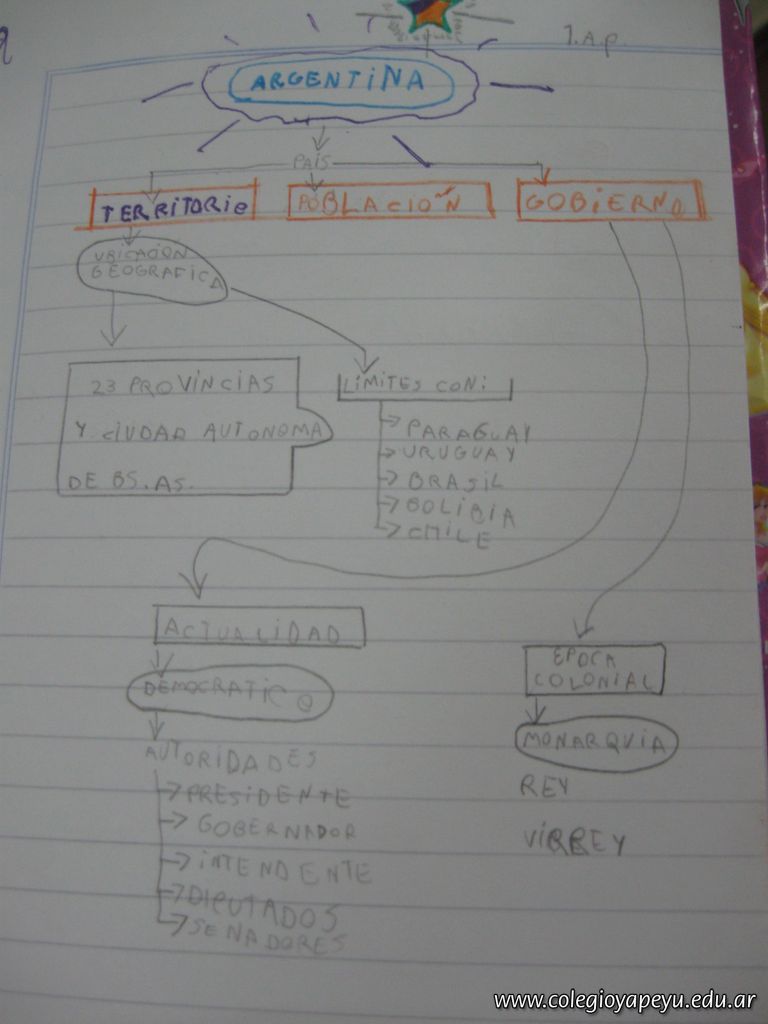 1.A.p.
ARGENTINA
PAÍS
TERRITORIO
POBLACIÓN
GOBIERNO
UBICACIÓN
GEOGRAFICA
23 PROVINCIAS
Y CIUDAD AUTONOMA
DE BS.AS.
LIMITES CON:
PARAGUAY
URUGUAY
BRASIL
BOLIBIA
CHILE
ACTUALIDAD
DEMOCRATICO
AUTORIDADES
PRESIDENTE
GOBERNADOR
INTENDENTE
DIPUTADOS
SENADORES
EPOCA
COLONIAL
MONARQUIA
REY
VIRREY
www.colegioyapeyu.edu.ar